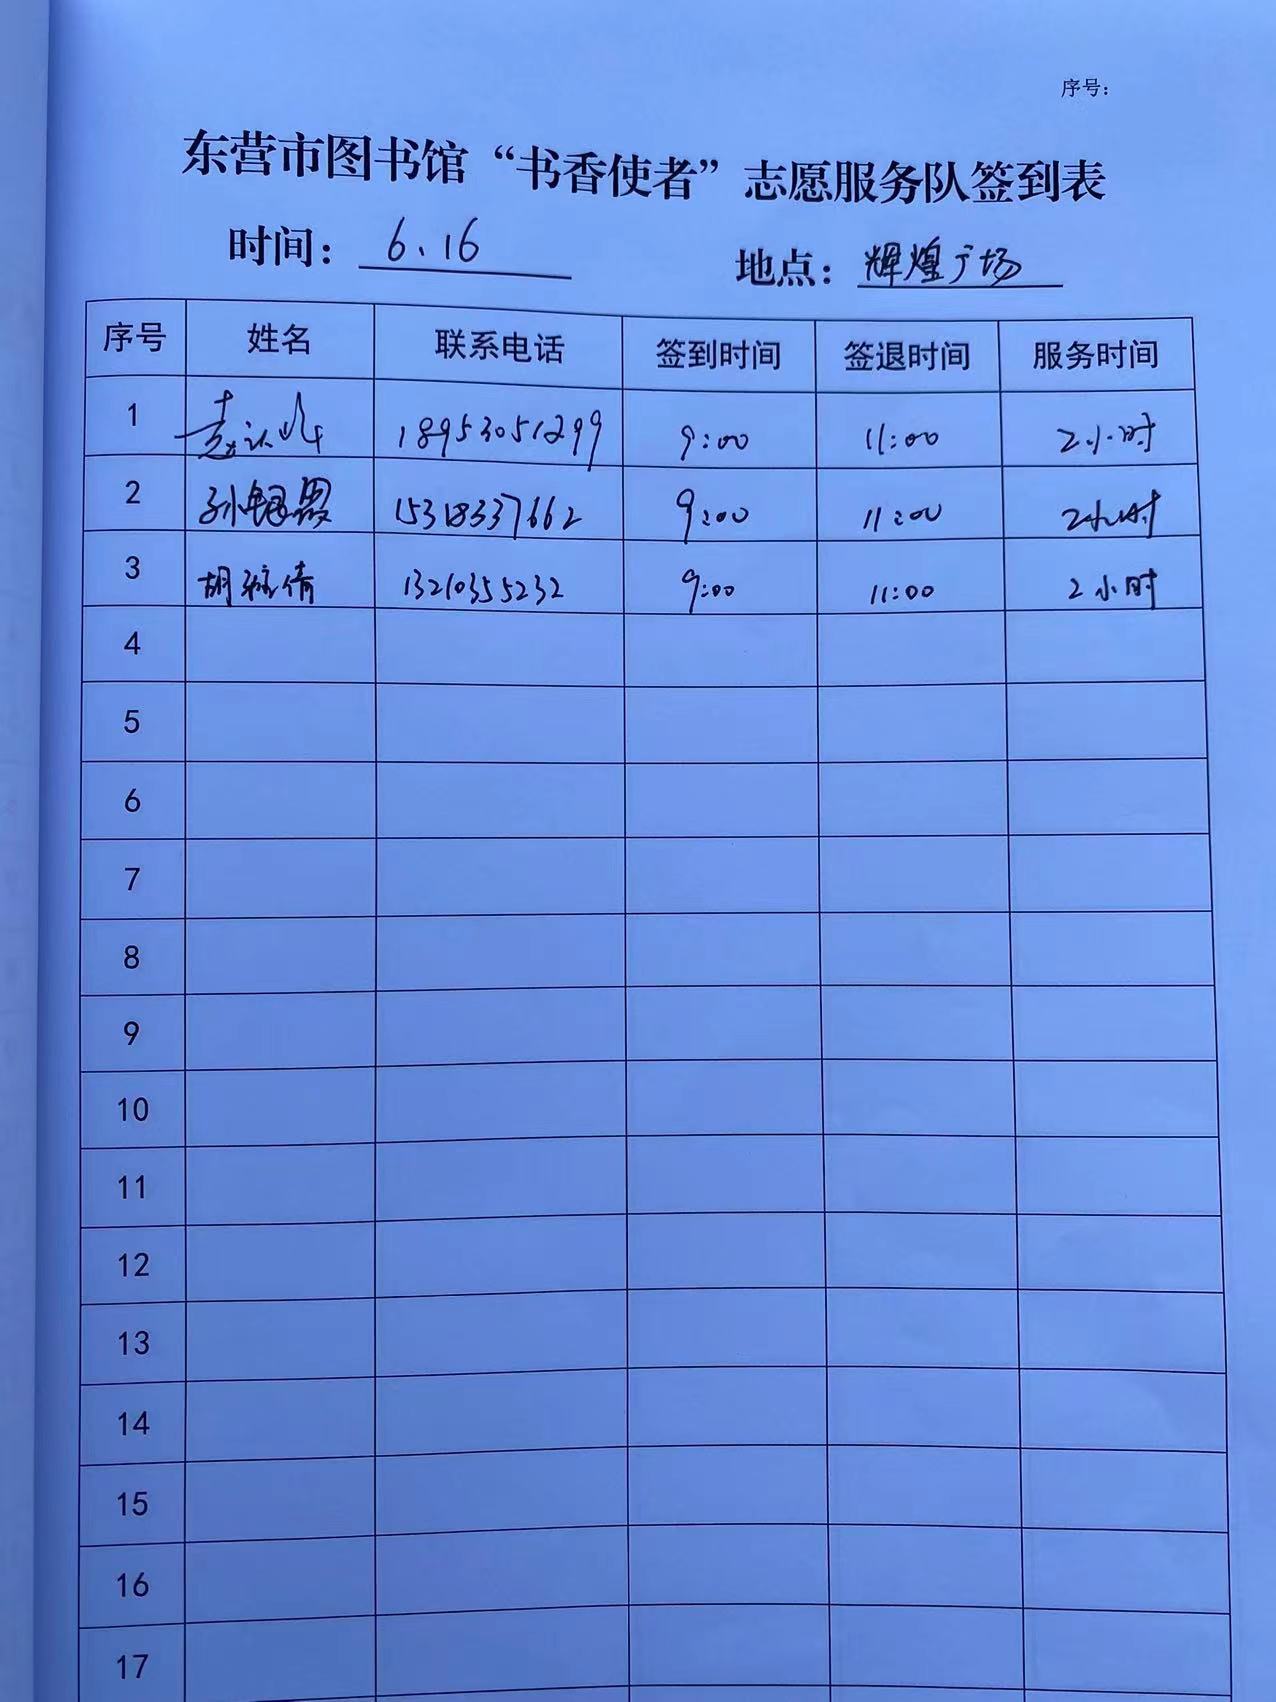 序号：
东营市图书馆“书香使者”志愿服务队签到表
时间：6.16 地点：辉煌广场
序号 姓名 联系电话 签到时间 签退时间 服务时间
1 18953051299 9:00 11:00 2小时
2 孙银霞 15318337662 9:00 11:00 2小时
3 胡 倩 13210355232 9:00 11:00 2小时
4
5
6
7
8
9
10
11
12
13
14
15
16
17